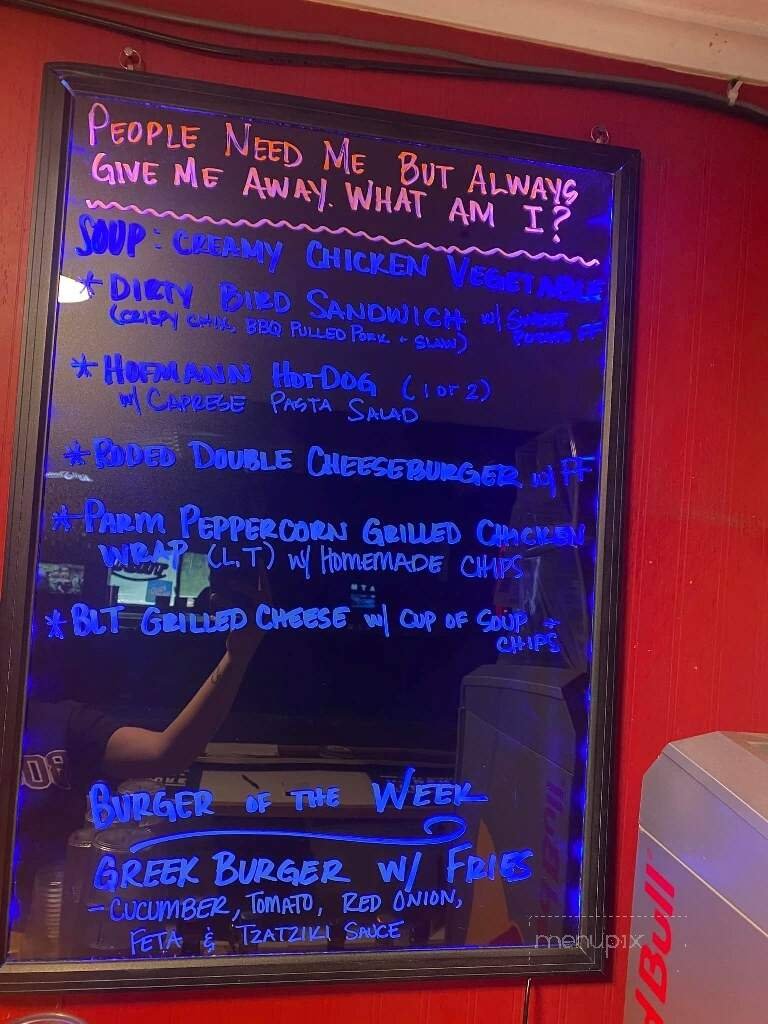 PEOPLE NEED ME BUT ALWAYS
GIVE ME AWAY. WHAT AM I?
SOUP: CREAMY CHICKEN VEGETABLE
* DIRTY BIRD SANDWICH w/ SWEET
POTATO FF
(CRISPY CHIX, BBQ PULLED PORK + SLAW)
* HOFMANN HOTDOG (1 or 2)
w/ CAPRESE PASTA SALAD
* RODEO DOUBLE CHEESEBURGER w/ FF
* PARM PEPPERCORN GRILLED CHICKEN
WRAP (L,T) w/ HOMEMADE CHIPS
* BLT GRILLED CHEESE w/ CUP OF SOUP +
CHIPS
BURGER OF THE WEEK
GREEK BURGER w/ FRIES
- CUCUMBER, TOMATO, RED ONION,
FETA & TZATZIKI SAUCE
menupix
d Bull